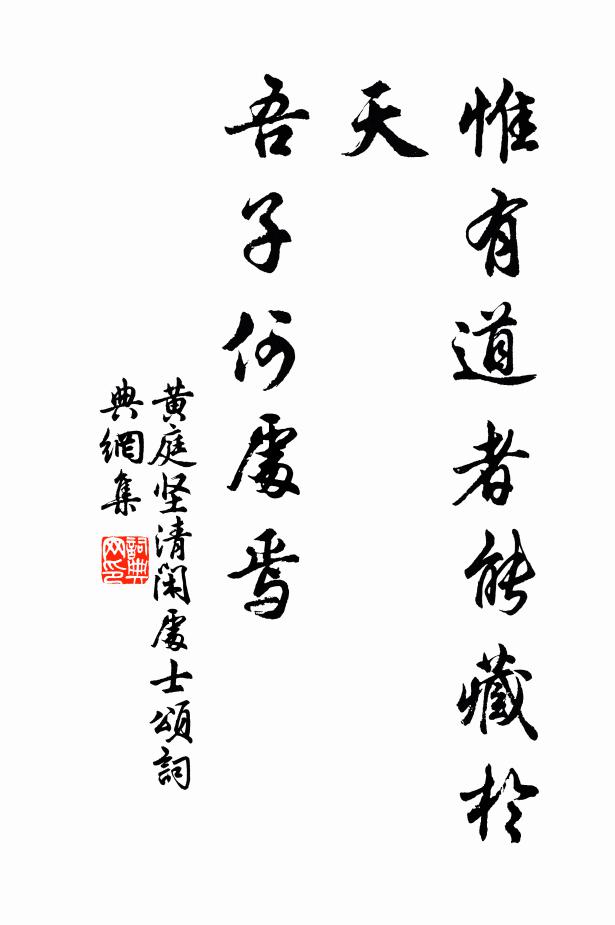 惟有道者能藏於
天
吾子何處焉
黄庭坚清閑處士頌詞
典網集
詞典
网印